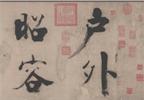 户外
昭容